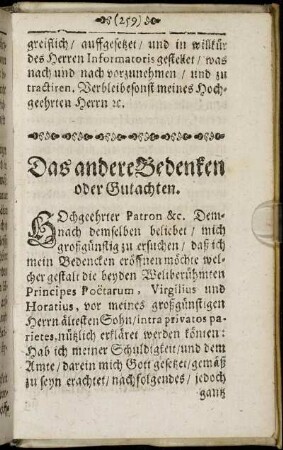 (259)
greifflich/ auffgesetzet/ und in willkür
des Herren Informatoris gestellet/ was
nach und nach vorzunehmen/ und zu
tractiren. Verbleibe sonst meines Hoch-
geehrten Herrn ꝛc.
Das andere Bedenken
oder Gutachten.
HOchgeehrter Patron &c. Dem-
nach demselben beliebet/ mich
großgünstig zu ersuchen/ daß ich
mein Bedencken eröffnen möchte wel-
cher gestalt die beyden Weltberühmten
Principes Poëtarum, Virgilius und
Horatius, vor meines großgünstigen
Herrn ältesten Sohn/ intra privatos pa-
rietes, nützlich erkläret werden können:
Hab ich meiner Schuldigkeit/ und dem
Amte/ darein mich Gott gesetzet/ gemäß
zu seyn erachtet/ nachfolgendes/ jedoch
gantz